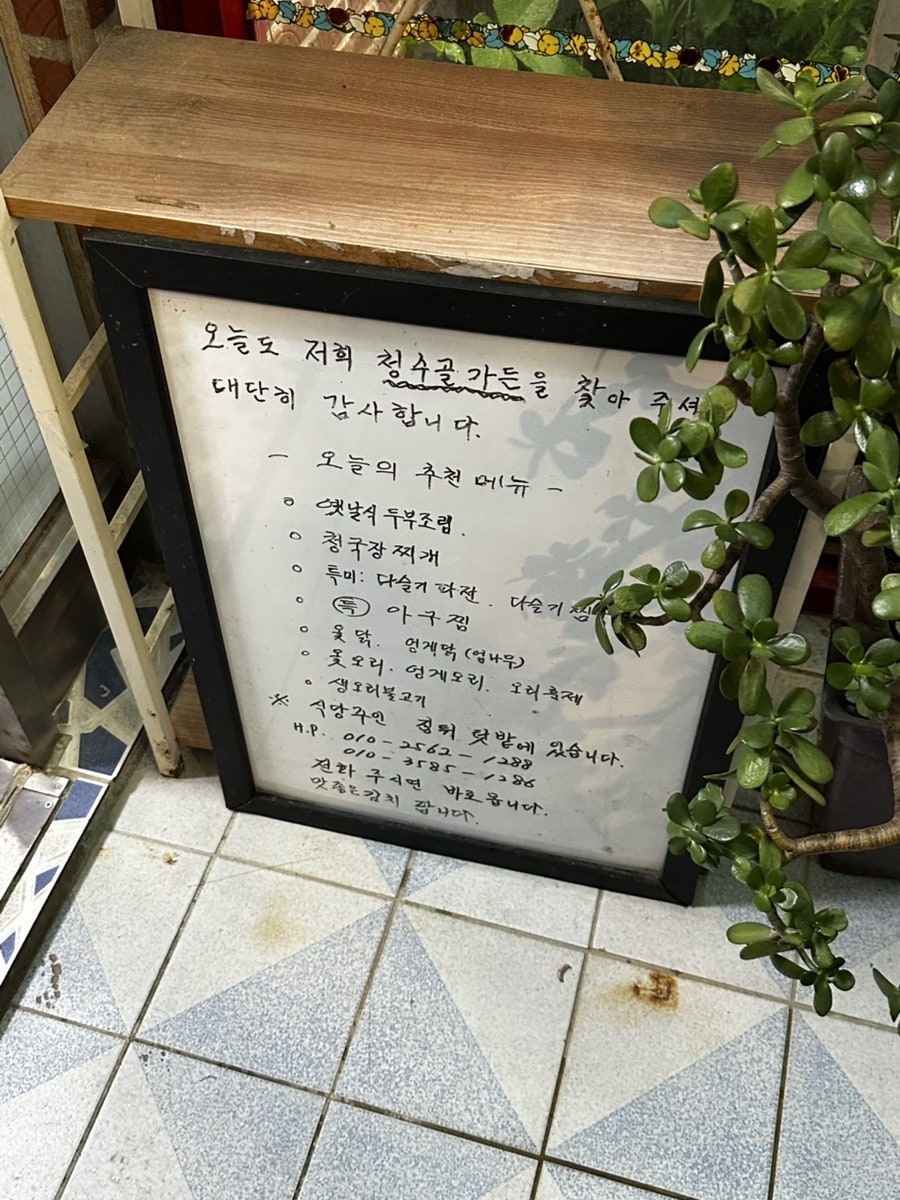 오늘도 저희 청수골가든을 찾아 주셔
대단히 감사합니다.
- 오늘의 추천 메뉴 -
○ 옛날식 두부조림.
○ 청국장 찌개
○ 특미: 다슬기 파전. 다슬기 찜
○ 특 아구찜
○ 옻닭. 엉게닭 (엄나무)
○ 옻오리. 엉게오리. 오리훈제
○ 생오리불고기
※ 식당주인 집뒤 텃밭에 있습니다.
H.P. 010-2562-1288
010-3585-1286
전화 주시면 바로 옵니다.
맛좋은김치 팝니다.